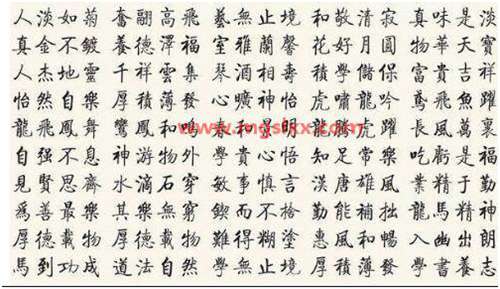 人淡如菊 奮翮高飛 藝無止境 和敬清寂 真味是淡
真金不鍍 養德澤福 室雅蘭馨 花好月圓 物華天寶
人杰地靈 千祥雲集 琴酒相壽 積學儲 富貴吉祥
怡然自樂 厚積薄發 心曠神怡 虎嘯龍吟 鳶飛魚躍
龍飛鳳舞 鸞鳳和鳴 和景明 龍騰虎躍 長風萬裏
自强不息 神游物外 學貴心悟 知足常樂 吃虧是福
見賢思齊 水滴石穿 敏事慎言 漢唐雄風 業精于勤
爲善最樂 其樂無窮 鍥而不捨 勤能補拙 龍馬精神
厚德載物 厚德載物 難得糊塗 惠風和暢 入幽出朗
馬到功成 道法自然 學無止境 厚積薄發 學書養志